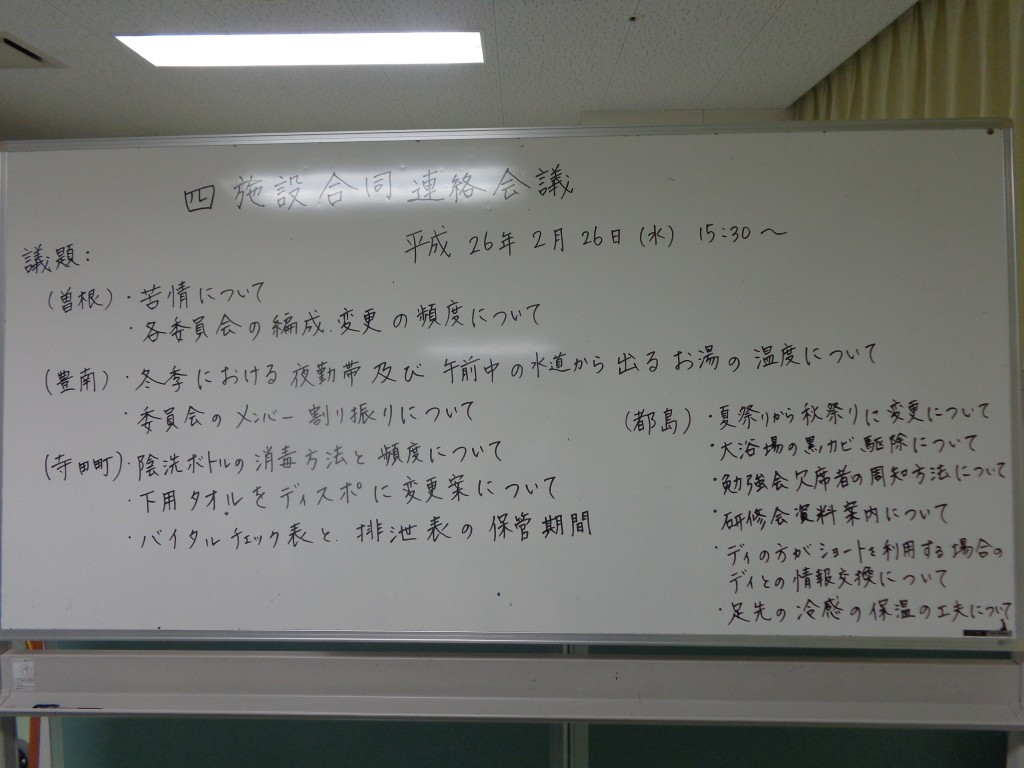 四施設合同連絡会議
平成 26年 2月 26日 (水) 15:30〜
議題:
(曽根)・苦情について
・各委員会の編成.変更の頻度について
(豊南)・冬季における夜勤帯及び午前中の水道から出るお湯の温度について
・委員会のメンバー割り振りについて
(寺田町)・陰洗ボトルの消毒方法と頻度について
・下用タオルをディスポに変更案について
・バイタルチェック表と、排泄表の保管期間
(都島)・夏祭りから秋祭りに変更について
・大浴場の黒カビ駆除について
・勉強会欠席者の周知方法について
・研修会資料案内について
・ディの方がショートを利用する場合の
ディとの情報交換について
・足先の冷感の保温の工夫について